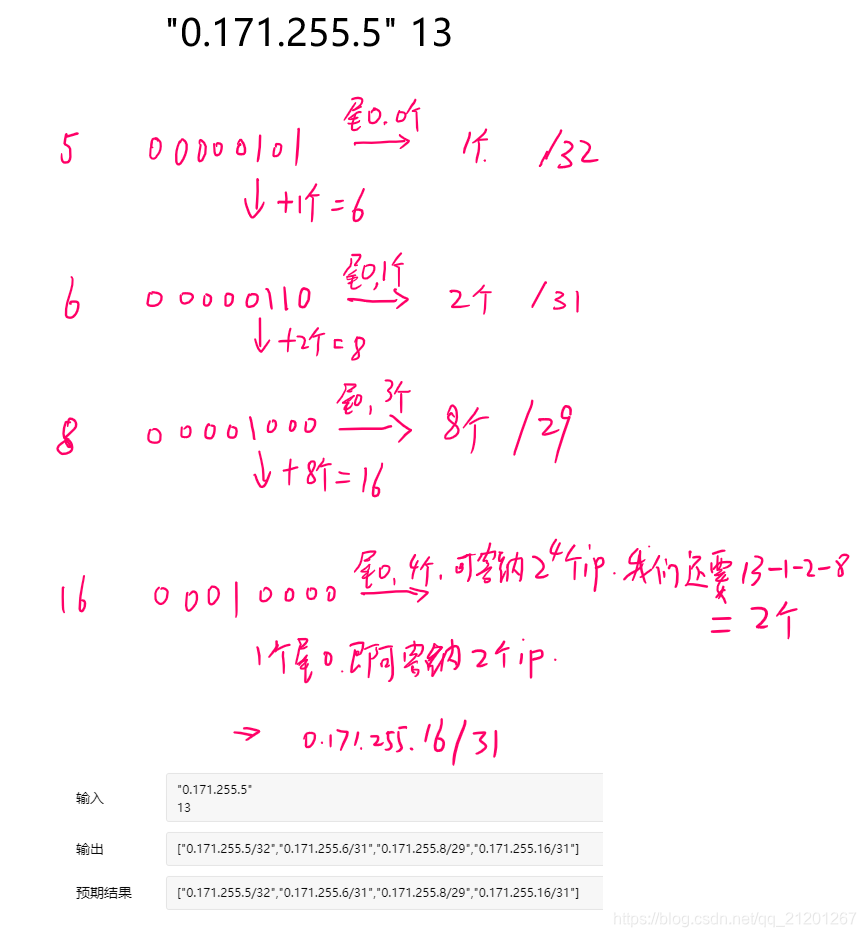 "0.171.255.5" 13
5 00000101 尾0.0个 → 1个 /32
↓ +1个=6
6 00000110 尾0,1个 → 2个 /31
↓ +2个=8
8 00001000 尾0,3个 → 8个 /29
↓ +8个=16
16 00010000 尾0,4个,可容纳2^4个ip.我们还要13-1-2-8
=2个
1个尾0.即可容纳2个ip.
→ 0.171.255.16/31
输入 "0.171.255.5"
13
输出 ["0.171.255.5/32","0.171.255.6/31","0.171.255.8/29","0.171.255.16/31"]
预期结果 ["0.171.255.5/32","0.171.255.6/31","0.171.255.8/29","0.171.255.16/31"]
https://blog.csdn.net/qq_21201267